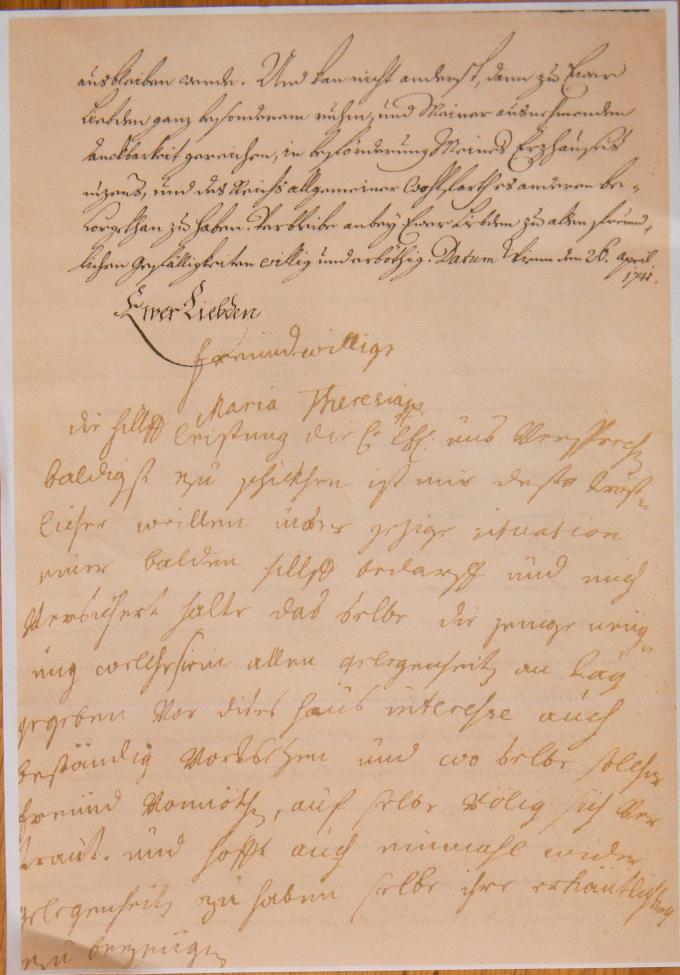 ausbleiben werde. Und kan nicht anderst, dann zu Ewer
Liebden ganz besonderem ruhm, und Meiner ausnehmenden
danckbarkeit gereichen, in beförderung Meines Erzhauses
nuzens, und des Reichs allgemeiner Wohlfarth es anderen be-
vorgethan zu haben. Verbleibe anbey Ewer Liebden zu allen freund-
lichen gefälligkeiten willig und erböthig. Datum Wienn den 26. April
1741.
Ewer Liebden
freundwillige
Maria Theresia
die hülff leistung die E. L. uns versprochen
baldigst zu schicken ist mir desto tröst-
licher weillen unser jezige situation
einer balden hilff bedarff und mich
versichert halte das selbe die jenige neig-
ung welche sie in allen gelegenheiten an tag
gegeben vor dises haus interesse auch
beständig vortsetzen und wo selbe solcher
freund vonnöthen, auf selbe völig sich ver
traut. und hofft auch einmahl wider
gelegenheit zu haben selbe ihre erkäntlichkeit
zu bezeugen